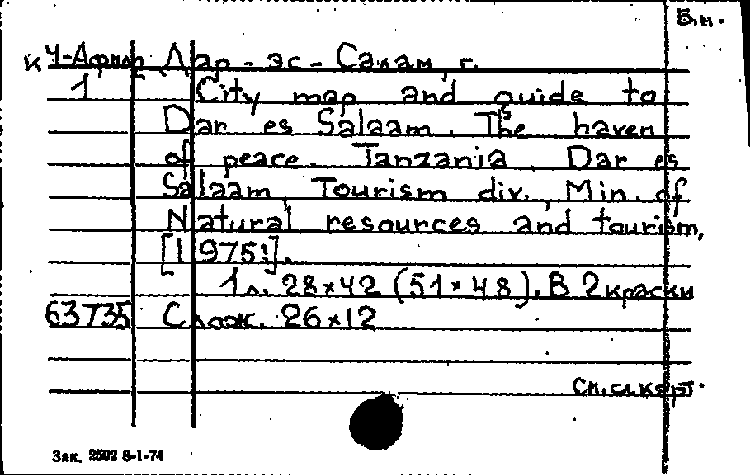 В.н.
К Ч-Африк. Дар-эс-Салам, г.
1 City map and guide to
Dar es Salaam. The haven
of peace. Tanzania. Dar es
Salaam, Tourism div., Min. of
Natural resources and tourism,
[1975!].
1 л. 28×42 (51×48). В 2 краски
63735 Слож. 26×12
Зак. 2502 8-1-74